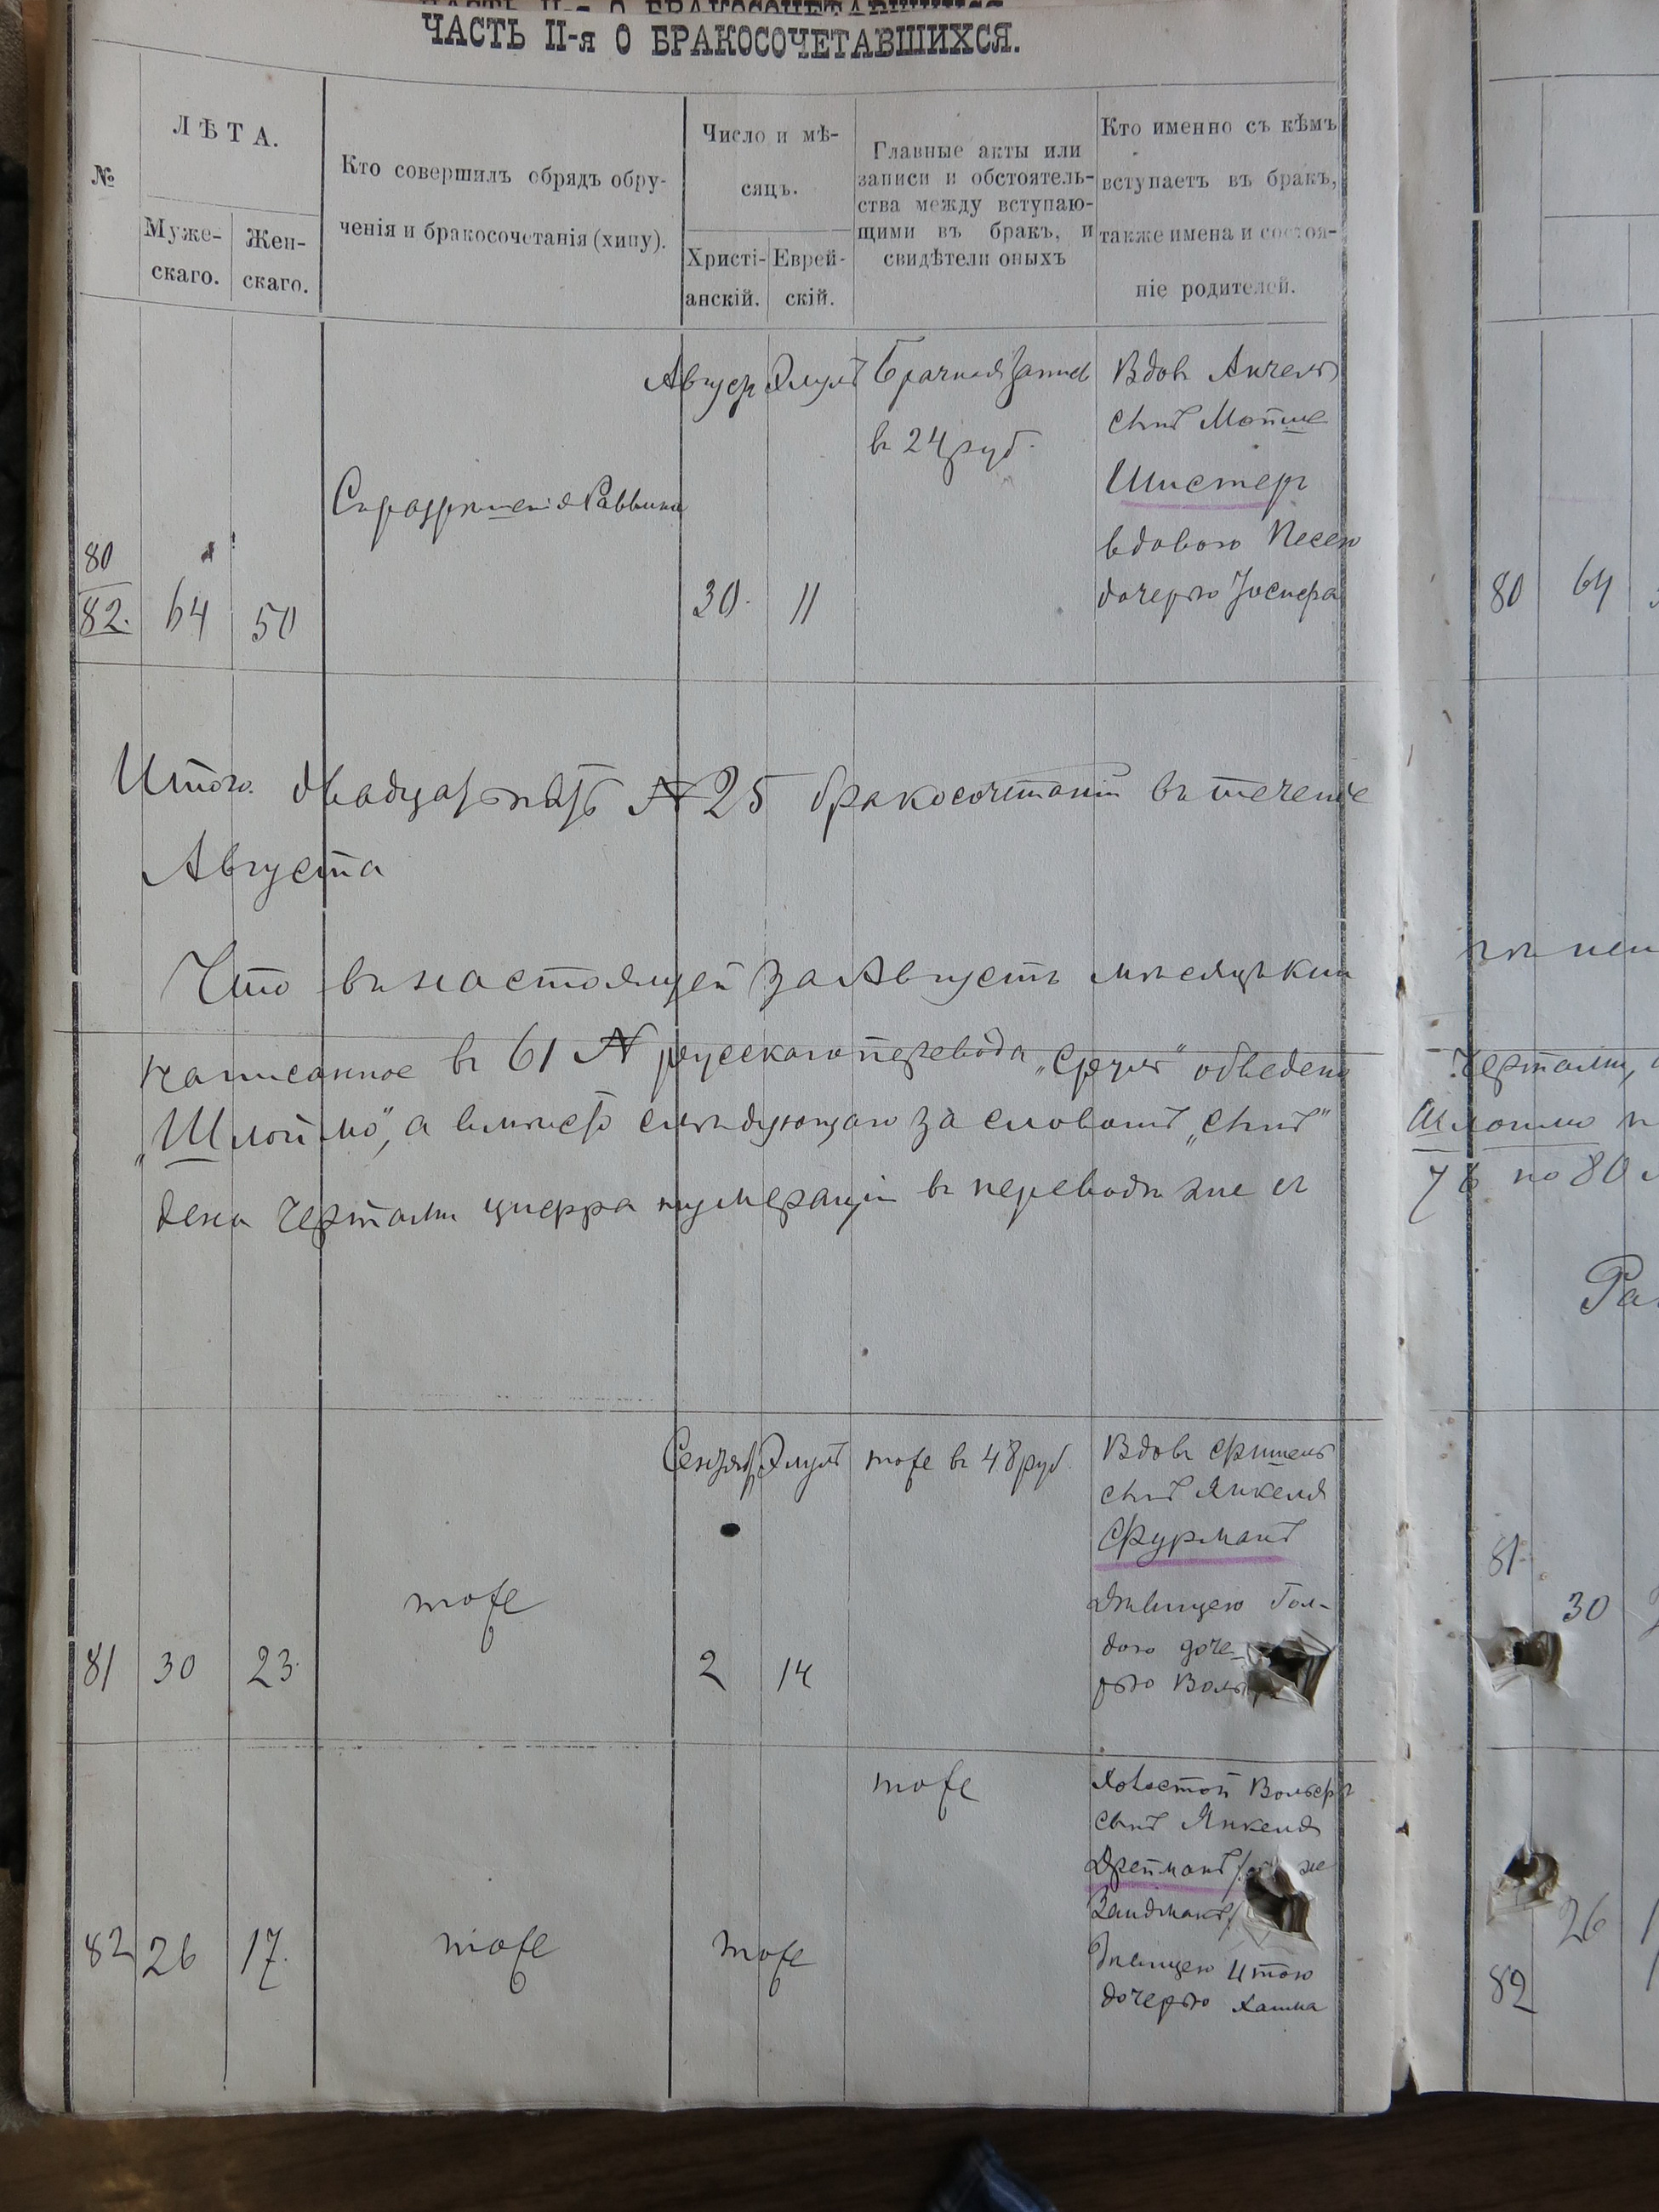 ЧАСТЬ II-я О БРАКОСОЧЕТАВШИХСЯ.
№
ЛѢТА.
Муже-
скаго.
Жен-
скаго.
Кто совершилъ обрядъ обру-
ченія и бракосочетанія (хипу).
Число и мѣ-
сяцъ.
Христі-
анскій.
Еврей-
скій.
Главные акты или
записи и обстоятель-
ства между вступаю-
щими въ бракъ, и
свидѣтели оныхъ
Кто именно съ кѣмъ
вступаетъ въ бракъ,
также имена и состоя-
ніе родителей.
80
82.
64
50
Съ разрѣшенія Раввина
Август
30.
Элулъ
11
Брачная запись
въ 24 руб.
Вдовъ Анчель
сынъ Мошке
Шистеръ
вдовою Песею
дочерью Іосифа
Итого двадцать пять № 25 бракосочетаній въ теченіе
Августа
Что въ настоящей за Августъ мѣсяцъ кни
написанное въ 61 № русскаго перевода „ обведен
„Шлоймо", а вмѣсто слѣдующаго за словомъ „сынъ"
дена чертами цифра нумераціи въ переводѣ же съ
81
30
23.
тоже
Сентяб
2
Элулъ
14
тоже въ 48 руб.
Вдовъ Фишель
сынъ Янкеля
Фурманъ
Дѣвицею Гол-
дою доче-
рью Воль
82
26
17.
тоже
тоже
тоже
Холостой Вольфъ
сынъ Янкеля
Дрейманъ / же
Зандманъ/
Дѣвицею Итою
дочерью Хаима
80
64
чертами,
Шлоймо
76 по 80
Ра
81
30
26
82